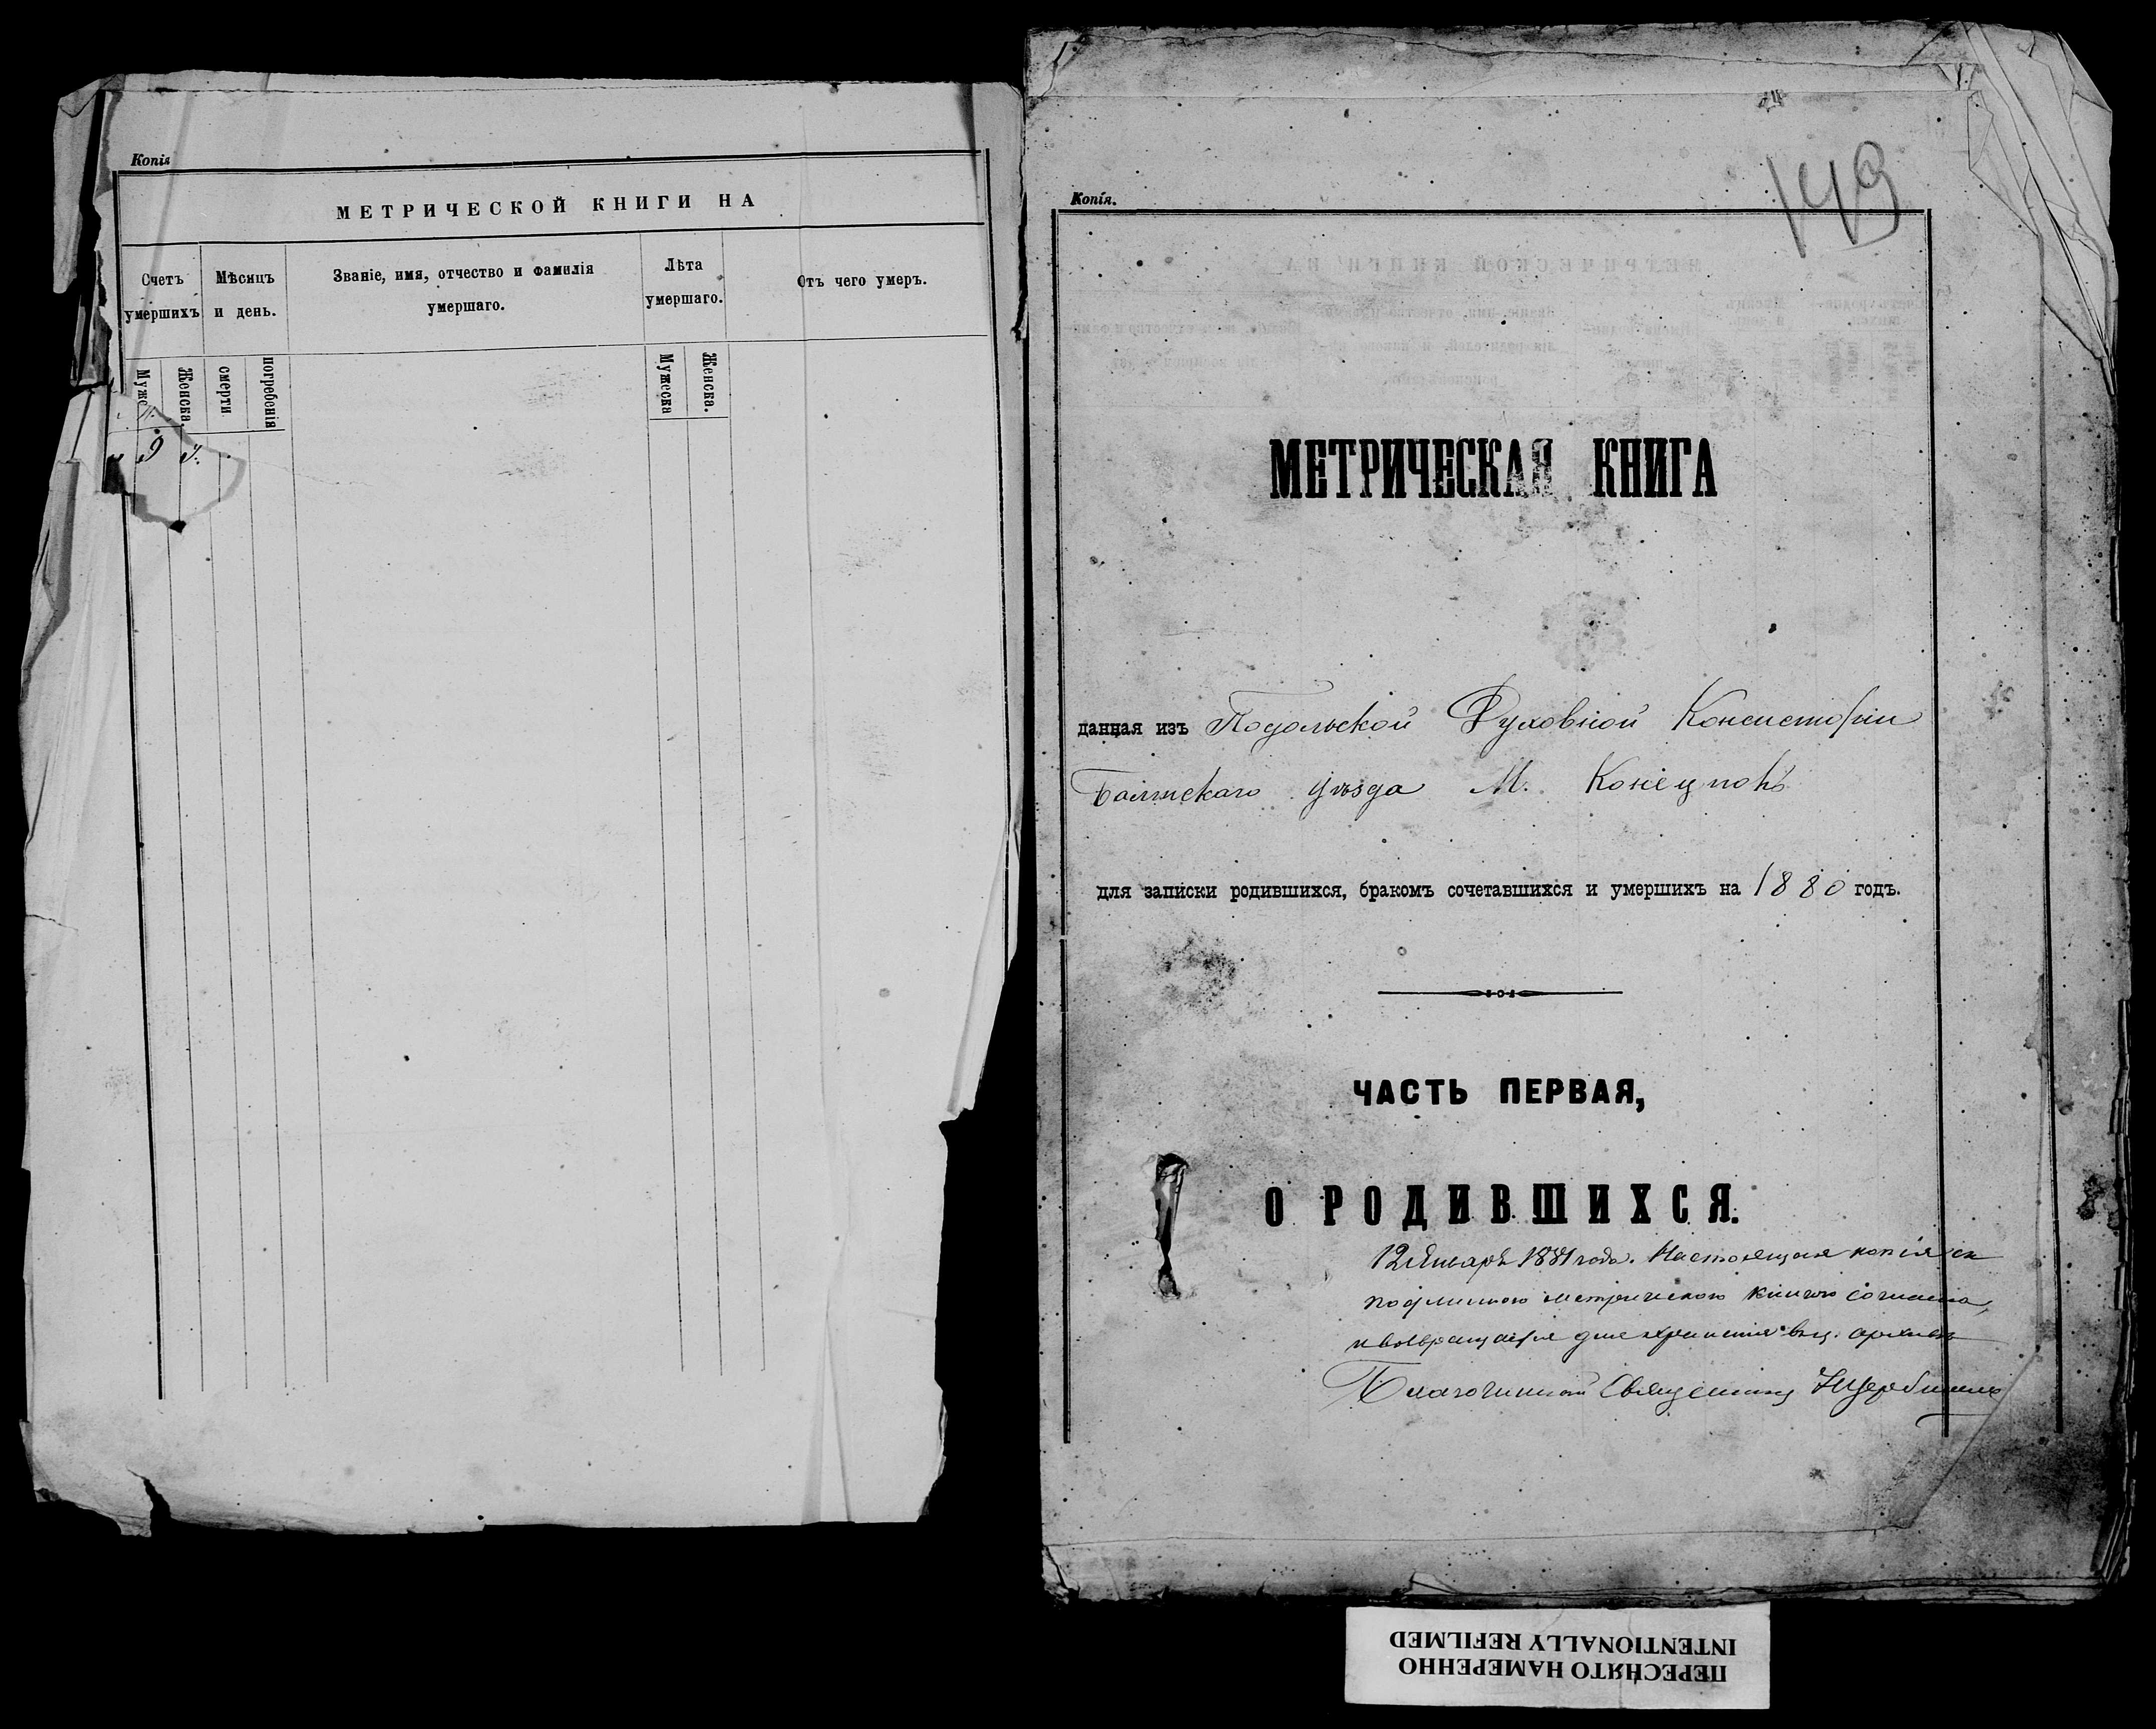 Копія
МЕТРИЧЕСКОЙ КНИГИ НА
Счетъ умершихъ
Мѣсяцъ и день.
Званіе, имя, отчество и фамилія умершаго.
Лѣта умершаго.
Отъ чего умеръ.
Женска.
смерти
погребенія
Мужеска
Женска.
Копія.
149
МЕТРИЧЕСКАЯ КНИГА
данная изъ Подольской Духовной Консисторіи
Балтскаго уѣзда М. Конецполь
для записки родившихся, бракомъ сочетавшихся и умершихъ на 1880 годъ.
ЧАСТЬ ПЕРВАЯ,
О РОДИВШИХСЯ.
12 Января 1881 года. Настоящая копія съ
подлинною метрическою книгою согласна,
и возвращается для храненія въ ц. архивъ
Благочинный Священникъ
ПЕРЕСНЯТО НАМЕРЕННО
INTENTIONALLY REFILMED